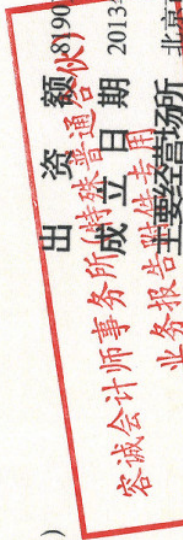 出资额 8190
成立日期 2013
主要经营场所 北京
容诚会计师事务所(特殊普通合伙)
业务报告附件专用
)